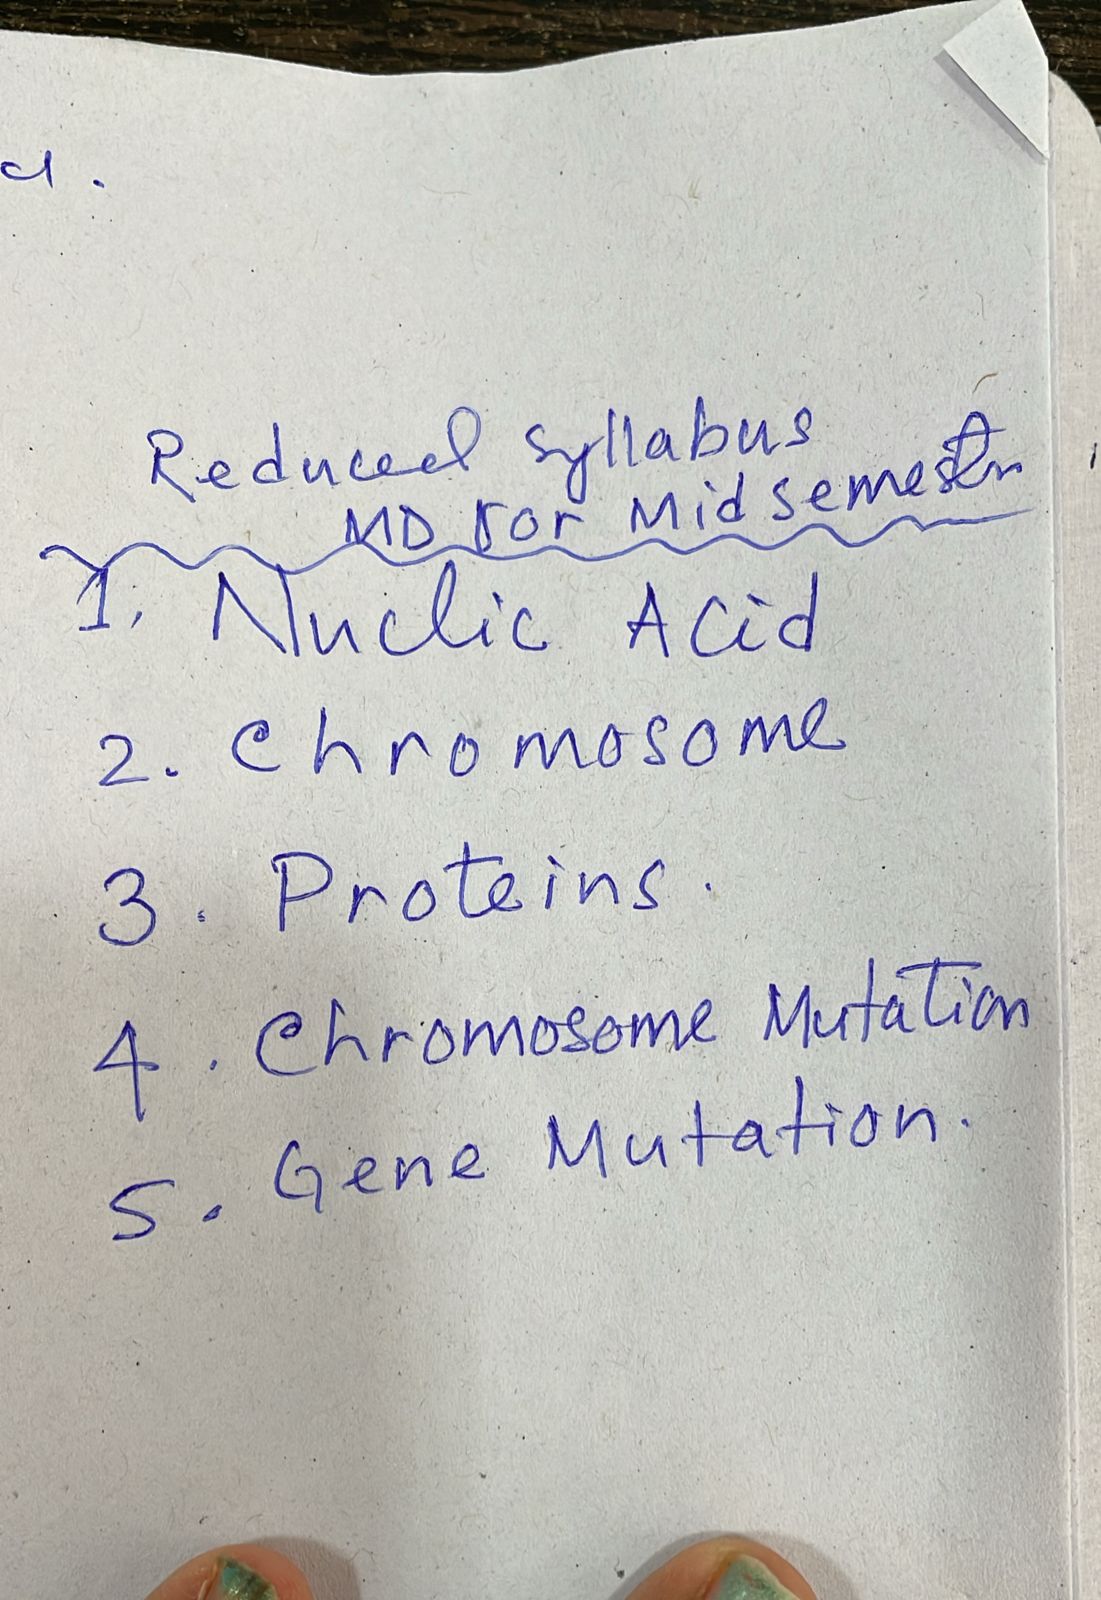 d.
Reduced Syllabus
MD for Midsemester
1. Nuclic Acid
2. Chromosome
3. Proteins.
4. Chromosome Mutation
5. Gene Mutation.